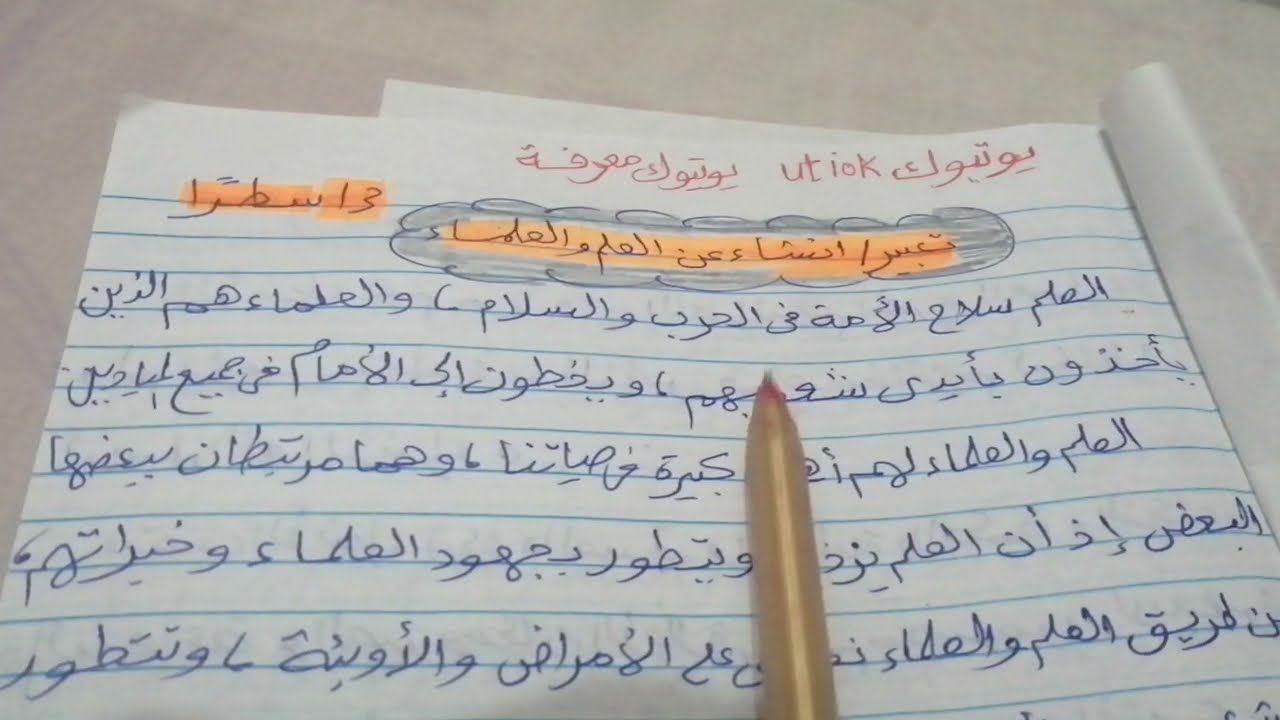 يوتيوك utiok يوتيوك معرفة
13 سطرًا
تعبير/ انشاء عن العلم والعلماء
العلم سلاح الأمة فى الحرب والسلام، والعلماء هم الذين
يأخذون بأيدى، ويخطون إلى الأمام فى جميع الميادين
العلم والعلماء لهم كبيرة فى حياتنا، وهما مرتبطان ببعضها
البعض إذ أن العلم ويتطور بجهود العلماء وخبراتهم،
طريق العلم والعلماء على الأمراض والأوبئة، وتتطور